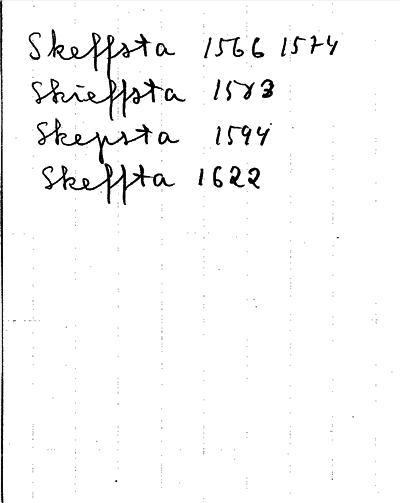 Skeffsta 1566 1574
Skieffsta 1583
Skepsta 1594
Skeffta 1622